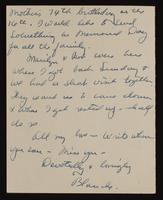 Mothers 74th birthday is the
16th. I would like to send
something on Memorial Day
for all the family.
Marilyn & Bob were here
when I got back Sunday &
we had a short visit together
They want me to come down
& when I get rested up - shall
do so
All my love - Write when
you can - Miss you -
Devotedly & lovingly
Blanche.